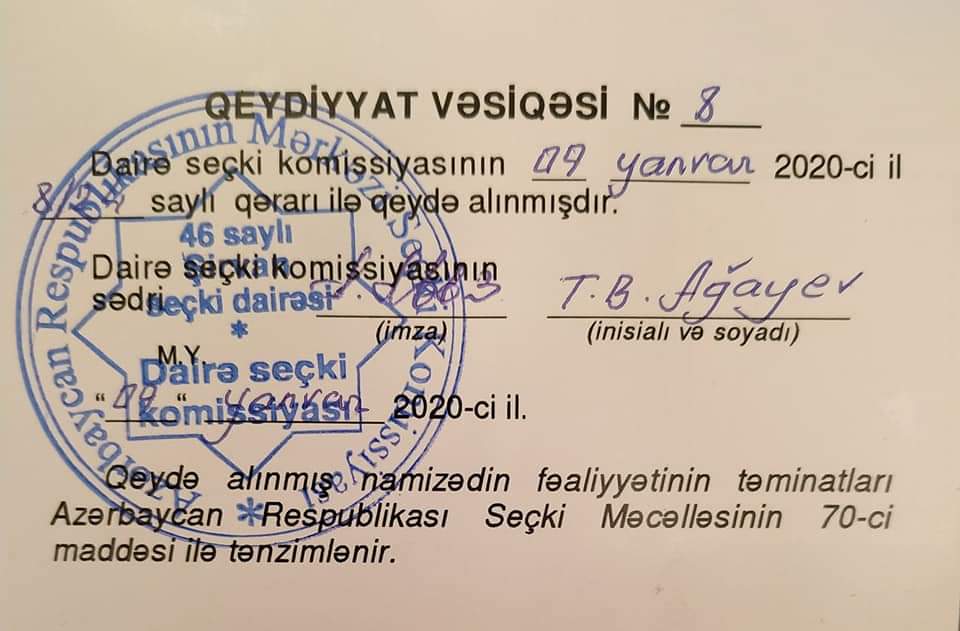 QEYDİYYAT VƏSİQƏSİ № 8
Dairə seçki komissiyasının 09 yanvar 2020-ci il
saylı qərarı ilə qeydə alınmışdır.
Dairə seçki komissiyasının
sədri T.B. Ağayev
(imza) (inisialı və soyadı)
M.Y.
“09“ yanvar 2020-ci il.
Qeydə alınmış namizədin fəaliyyətinin təminatları
Azərbaycan Respublikası Seçki Məcəlləsinin 70-ci
maddəsi ilə tənzimlənir.
Azərbaycan Respublikasının Mərkəzi Seçki Komissiyası
46 saylı
Şirvan
seçki dairəsi
*
Dairə seçki
komissiyası
*